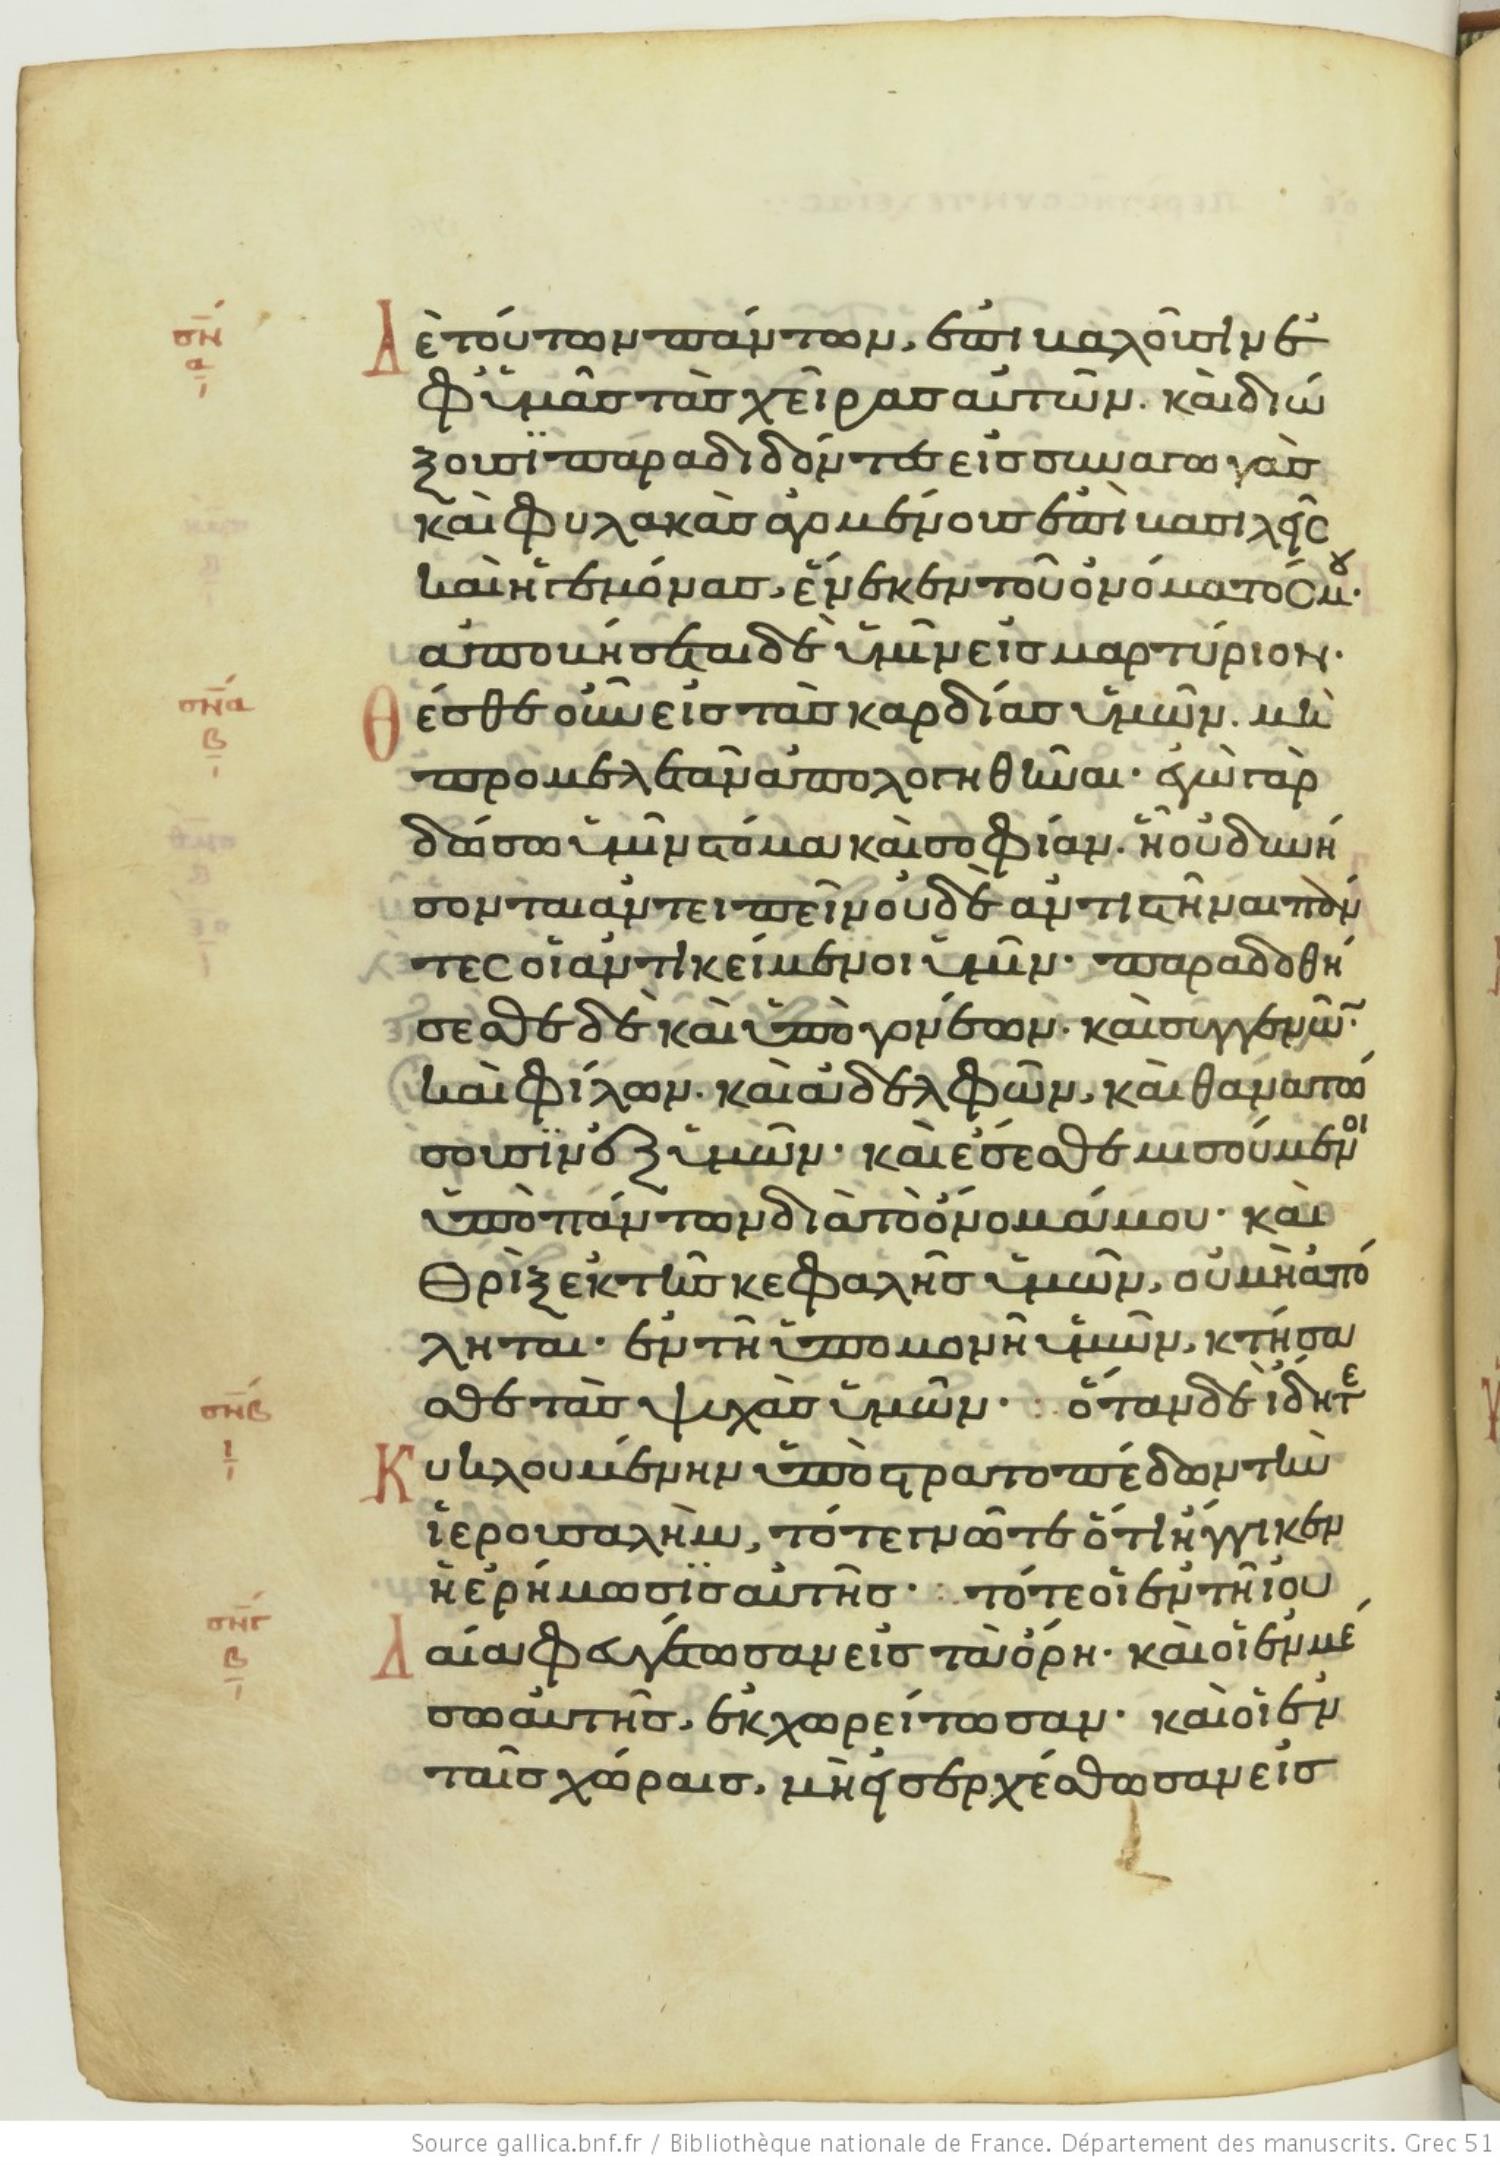 σν̅
α
Δὲ τούτων πάντων, ἐπιβαλοῦσιν ἐ
φ' ὑμᾶς τὰς χεῖρας αὐτῶν. καὶ διώ
ξουσϊ παραδιδόντες εἰς συναγωγὰς
καὶ φυλακὰς ἀγομένους ἐπὶ βασιλεῖς
καὶ ἡγεμόνας, ἕνεκεν τοῦ ὀνόματός μου·
ἀποβήσεται δὲ ὑμῖν εἰς μαρτύριον·
σνα
β
Θέσθε οὖν εἰς τὰς καρδίας ὑμῶν. μὴ
προμελεταν ἀπολογηθῆναι· ἐγὼ γὰρ
δώσω ὑμῖν στόμα καὶ σοφίαν. ἧ οὐ δυνή
σονται ἀντειπεῖν οὐδὲ ἀντιστῆναι πάν
τες οἱ ἀντικείμενοι ὑμῖν· παραδοθή
σεσθε δὲ καὶ ὑπὸ γονέων. καὶ συγγενῶν·
καὶ φίλων. καὶ ἀδελφῶν, καὶ θανατώ
σουσϊν ἐξ ὑμῶν· καὶ ἔσεσθε μισούμενοι
ὑπὸ πάντων διὰ τὸ ὄνομά μου· καὶ
θρὶξ ἐκ τῆς κεφαλῆς ὑμῶν, οὐ μὴ ἀπό
ληται· ἐν τῆ ὑπομονῆ ὑμῶν, κτήσα
σθε τὰς ψυχὰς ὑμῶν· : ὅταν δὲ ἴδητε
σνβ
ι
Κυκλουμένην ὑπὸ στρατοπέδων τὴν
ἱερουσαλὴμ, τότε γνῶτε ὅτι ἤγγικεν
ἡ ἐρήμωσϊς αὐτῆς· : τότε οἱ ἐν τῆ ἰου
σνγ
β
Δαία φευγέτωσαν εἰς τὰ ὄρη· καὶ οἱ ἐν μέ
σω αὐτῆς, ἐκχωρείτωσαν· καὶ οἱ ἐν
ταῖς χώραις, μὴ εἰσερχέσθωσαν εἰς
Source gallica.bnf.fr / Bibliothèque nationale de France. Département des manuscrits. Grec 51